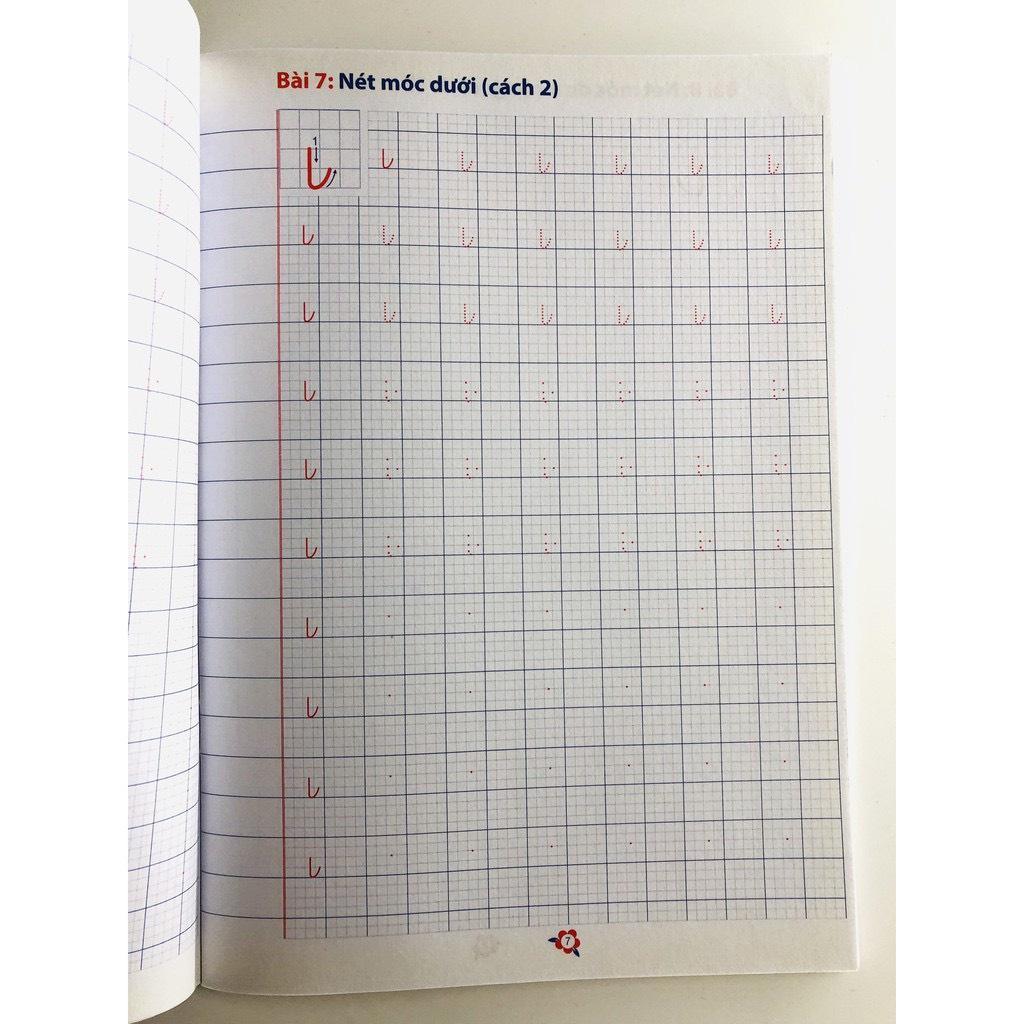 Bài 7: Nét móc dưới (cách 2)
1
7